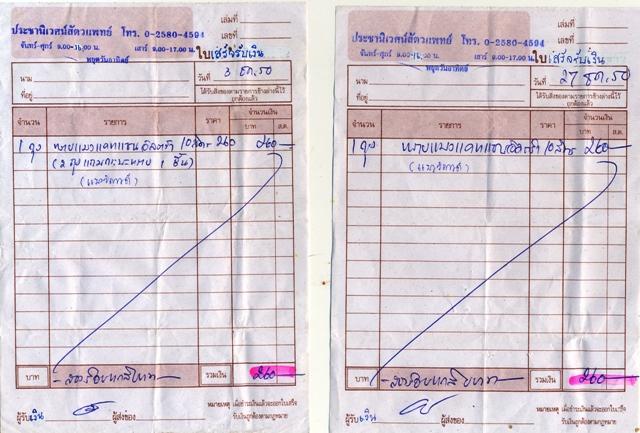 ประชานิเวศน์สัตวแพทย์ โทร. 0-2580-4594
จันทร์-ศุกร์ 9.00-16.00 น. เสาร์ 9.00-17.00 น.
หยุดวันอาทิตย์
เล่มที่
เลขที่
ใบเสร็จรับเงิน
นาม
วันที่ 3 ธค.50
ที่อยู่
ได้รับสิ่งของตามรายการข้างล่างนี้ไว้
ถูกต้องแล้ว
จำนวน รายการ ราคา จำนวนเงิน
บาท ส.ต.
1 ถุง ทรายแมวแคทแซน 10 ลิตร 260 260-
บาท -สองร้อยหกสิบบาท- รวมเงิน 260
ผู้รับเงิน ผู้ส่งของ
หมายเหตุ เมื่อชำระเงินแล้วจะออกใบเสร็จ
รับเงินถูกต้องตามกฎหมาย
ประชานิเวศน์สัตวแพทย์ โทร. 0-2580-4594
จันทร์-ศุกร์ 9.00-16.00 น. เสาร์ 9.00-17.00 น.
หยุดวันอาทิตย์
เล่มที่
เลขที่
ใบเสร็จรับเงิน
นาม
วันที่ 27 ธค.50
ที่อยู่
ได้รับสิ่งของตามรายการข้างล่างนี้ไว้
ถูกต้องแล้ว
จำนวน รายการ ราคา จำนวนเงิน
บาท ส.ต.
1 ถุง ทรายแมวแคทแซน 10 ลิตร 260-
บาท -สองร้อยหกสิบบาท- รวมเงิน 260
ผู้รับเงิน ผู้ส่งของ
หมายเหตุ เมื่อชำระเงินแล้วจะออกใบเสร็จ
รับเงินถูกต้องตามกฎหมาย